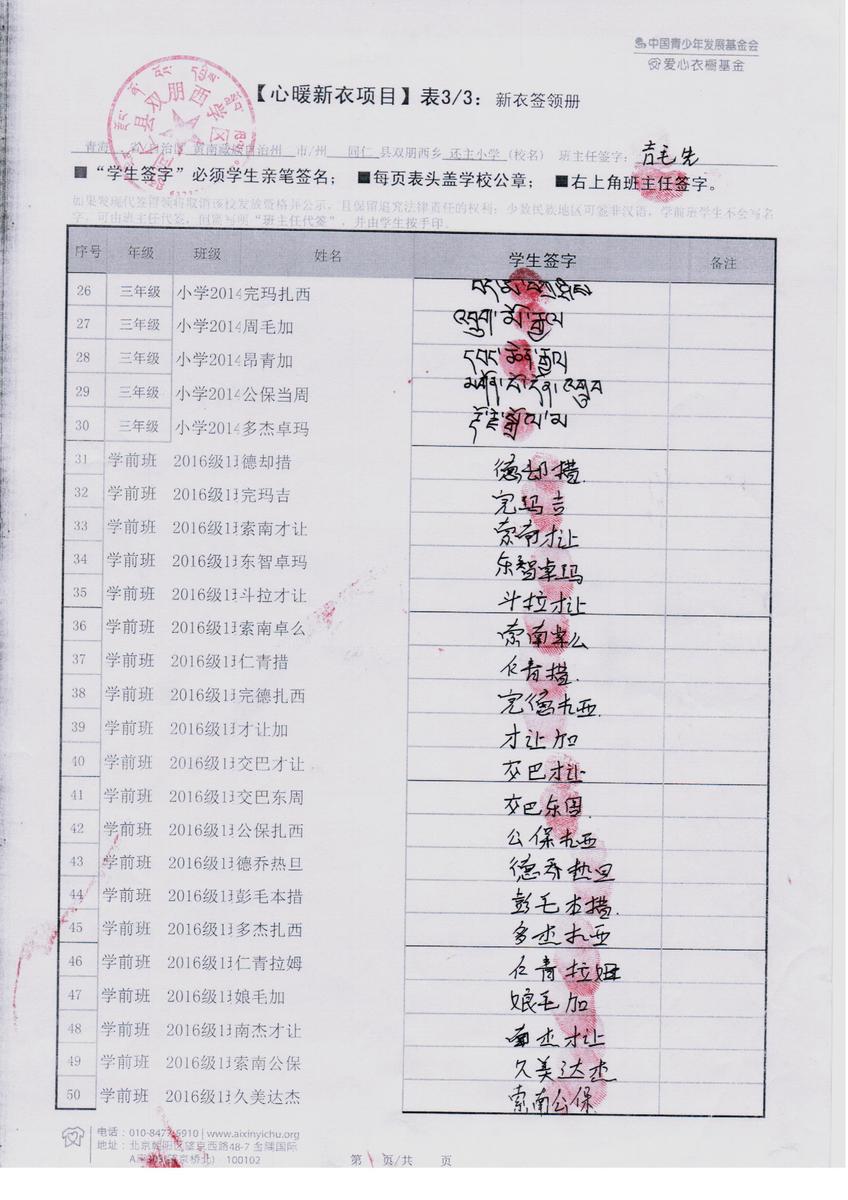 中国青少年发展基金会
爱心衣橱基金
【心暖新衣项目】表3/3: 新衣签领册
双朋西
学区
青海 省/自治区 黄南藏族自治州 市/州 同仁 县双朋西乡 还主小学 (校名) 班主任签字: 吉毛先
■“学生签字”必须学生亲笔签名; ■每页表头盖学校公章; ■右上角班主任签字。
如果发现代签冒领将取消该校发放资格并公示,且保留追究法律责任的权利;少数民族地区可签非汉语,学前班学生不会写名
字,可由班主任代签,但需写明“班主任代签”,并由学生按手印。
序号 年级 班级 姓名 学生签字 备注
26 三年级 小学2014 完玛扎西
27 三年级 小学2014 周毛加
28 三年级 小学2014 昂青加
29 三年级 小学2014 公保当周
30 三年级 小学2014 多杰卓玛
31 学前班 2016级1 德却措 德却措.
32 学前班 2016级1 完玛吉 完玛吉
33 学前班 2016级1 索南才让 索南才让
34 学前班 2016级1 东智卓玛 东智卓玛
35 学前班 2016级1 斗拉才让 斗拉才让
36 学前班 2016级1 索南卓么 索南卓么
37 学前班 2016级1 仁青措 仁青措.
38 学前班 2016级1 完德扎西 完德扎西.
39 学前班 2016级1 才让加 才让加
40 学前班 2016级1 交巴才让 交巴才让
41 学前班 2016级1 交巴东周 交巴东周.
42 学前班 2016级1 公保扎西 公保扎西
43 学前班 2016级1 德乔热旦 德乔热旦
44 学前班 2016级1 彭毛本措 彭毛本措.
45 学前班 2016级1 多杰扎西 多杰扎西
46 学前班 2016级1 仁青拉姆 仁青拉姆
47 学前班 2016级1 娘毛加 娘毛加
48 学前班 2016级1 南杰才让 南杰才让
49 学前班 2016级1 索南公保 久美达杰
50 学前班 2016级1 久美达杰 索南公保
电话:010-8477-5910 | www.aixinyichu.org
地址:北京朝阳区望京西路48-7 金隅国际
A座303(望京桥北) 100102
第 页/共 页